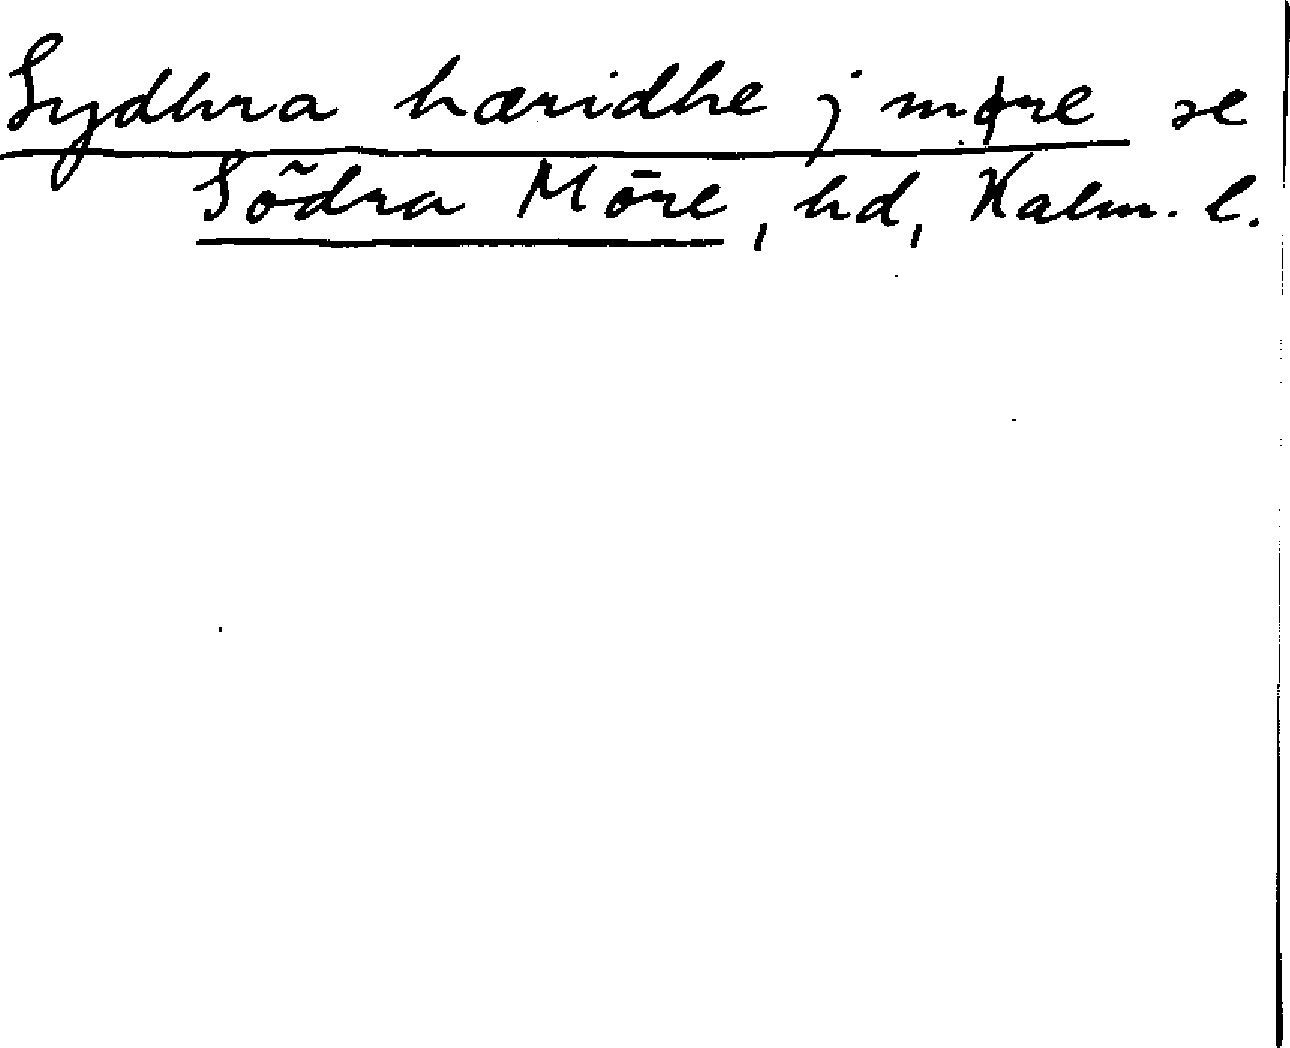 Sydhra hæridhe j møre se
Södra Möre, hd, Kalm. l.